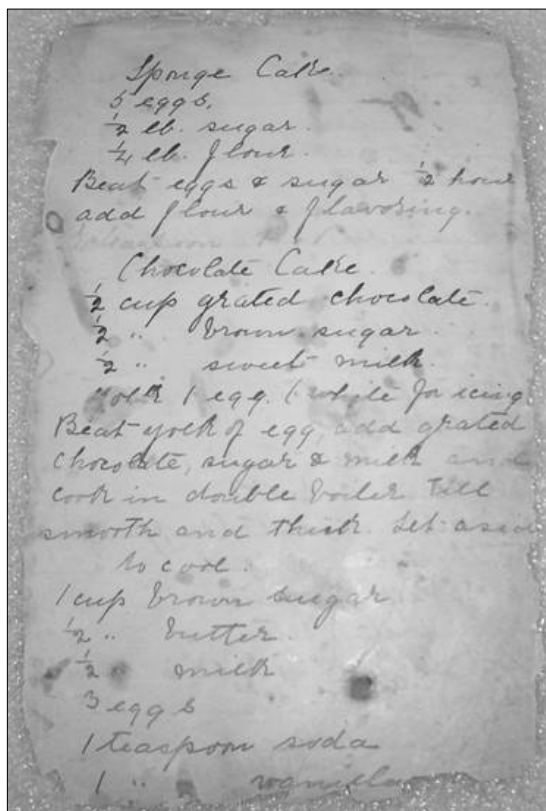 Sponge Cake.
5 eggs.
1/2 lb. sugar.
1/4 lb. flour.
Beat eggs & sugar 1/2 hour
add flour & flavoring.
teaspoon
Chocolate Cake.
1/2 cup grated chocolate.
1/2 " brown sugar.
1/2 " sweet milk.
Yolk 1 egg. (white for icing
Beat yolk of egg, add grated
chocolate, sugar & milk and
cook in double boiler till
smooth and thick. Set asid
to cool.
1 cup brown sugar
1/2 " butter.
1/2 " milk
3 eggs
1 teaspoon soda
1 "